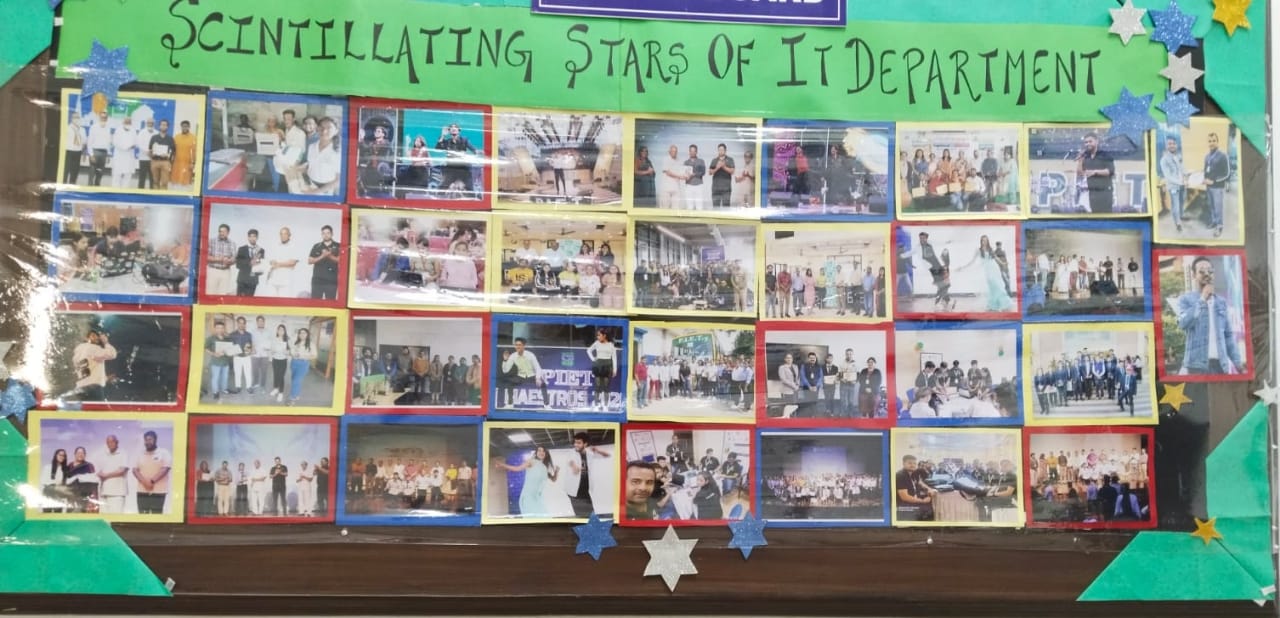 SCINTILLATING STARS OF IT DEPARTMENT
PIET
PIET